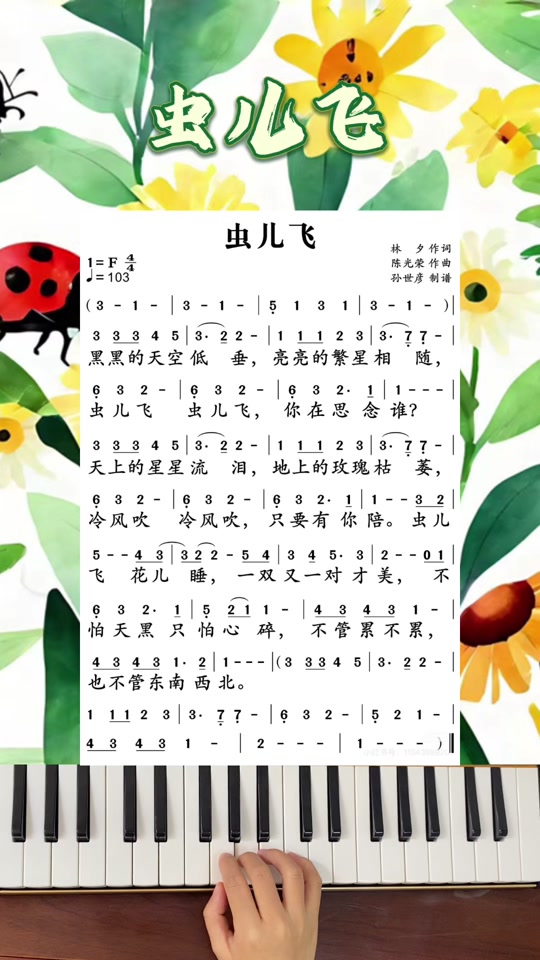 虫儿飞
虫儿飞
林 夕 作词
1=F 4/4
陈光荣 作曲
♩=103
孙世彦 制谱
(3 - 1 - | 3 - 1 - | 5̣ 1 3 1 | 3 - 1 -)|
3 33 4 5 | 3· 2 2 - | 1 11 2 3 | 3· 7̣ 7̣ - |
黑黑的天空低 垂，亮亮的繁星相 随，
6̣ 3 2 - | 6̣ 3 2 - | 6̣ 3 2· 1 | 1 - - - |
虫儿飞 虫儿飞，你在思念谁？
3 33 4 5 | 3· 2 2 - | 1 11 2 3 | 3· 7̣ 7̣ - |
天上的星星流 泪，地上的玫瑰枯 萎，
6̣ 3 2 - | 6̣ 3 2 - | 6̣ 3 2· 1 | 1 - - 32 |
冷风吹 冷风吹，只要有你陪。虫儿
5 - - 43 | 32 2 - 54 | 3 4 5· 3 | 2 - - 01 |
飞 花儿 睡，一双又一对才美，不
6̣ 3 2· 1 | 5̣ 21 1 - | 43 43 1 - |
怕天黑只怕心碎，不管累不累，
43 43 1· 2 | 1 - - - |(3 33 4 5 | 3· 2 2 - |
也不管东南西北。
1 11 2 3 | 3· 7̣ 7̣ - | 6̣ 3 2 - | 5̣ 2 1 - |
43 43 1 - | 2 - - - | 1 - - )‖